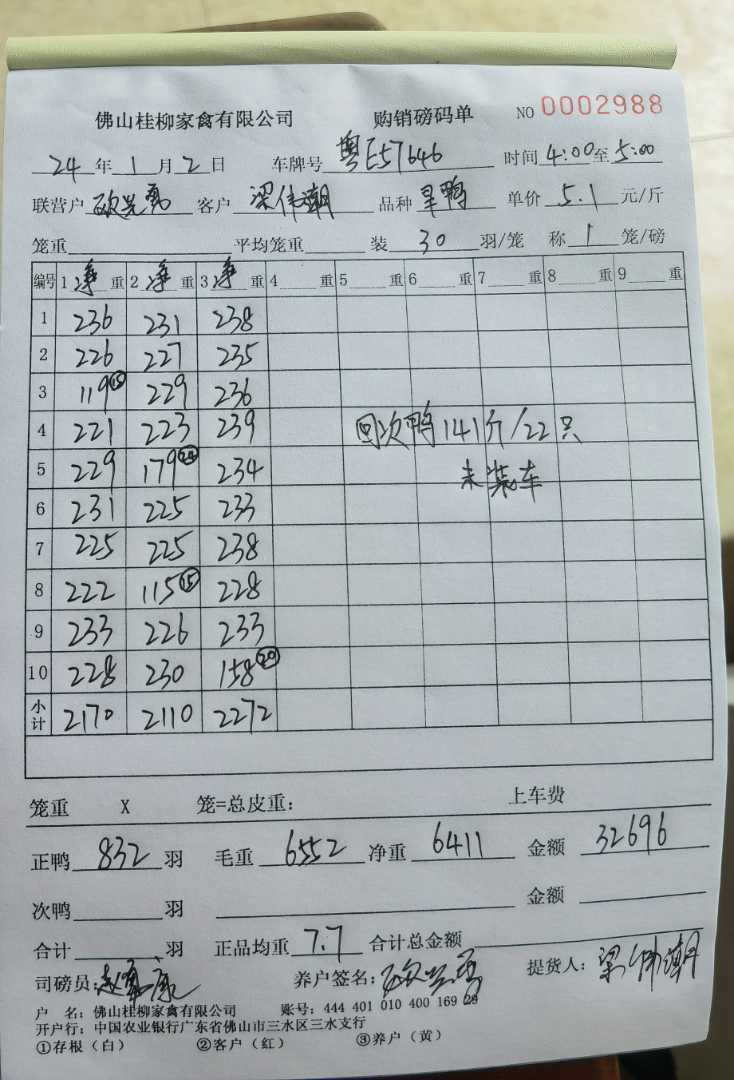 佛山桂柳家禽有限公司 购销磅码单 NO 0002988
24年1月2日 车牌号 粤E57646 时间 4:00至5:00
联营户 欧兴勇 客户 梁伟潮 品种 旱鸭 单价 5.1 元/斤
笼重 平均笼重 装 30 羽/笼 称 1 笼/磅
编号 1 净 重 2 净 重 3 净 重 4 重 5 重 6 重 7 重 8 重 9 重
1 236 231 238
2 226 227 235
3 119⑮ 229 236
4 221 223 239 回次鸭141斤/22只
5 229 179㉔ 234 未装车
6 231 225 233
7 225 225 238
8 222 115⑮ 228
9 233 226 233
10 228 230 158⑳
小计 2170 2110 2272
笼重 X 笼=总皮重: 上车费
正鸭 832 羽 毛重 6552 净重 6411 金额 32696
次鸭 羽 金额
合计 羽 正品均重 7.7 合计总金额
司磅员: 养户签名: 欧兴勇 提货人: 梁伟潮
户 名: 佛山桂柳家禽有限公司 账号: 444 401 010 400 169 29
开户行: 中国农业银行广东省佛山市三水区三水支行
①存根（白） ②客户（红） ③养户（黄）